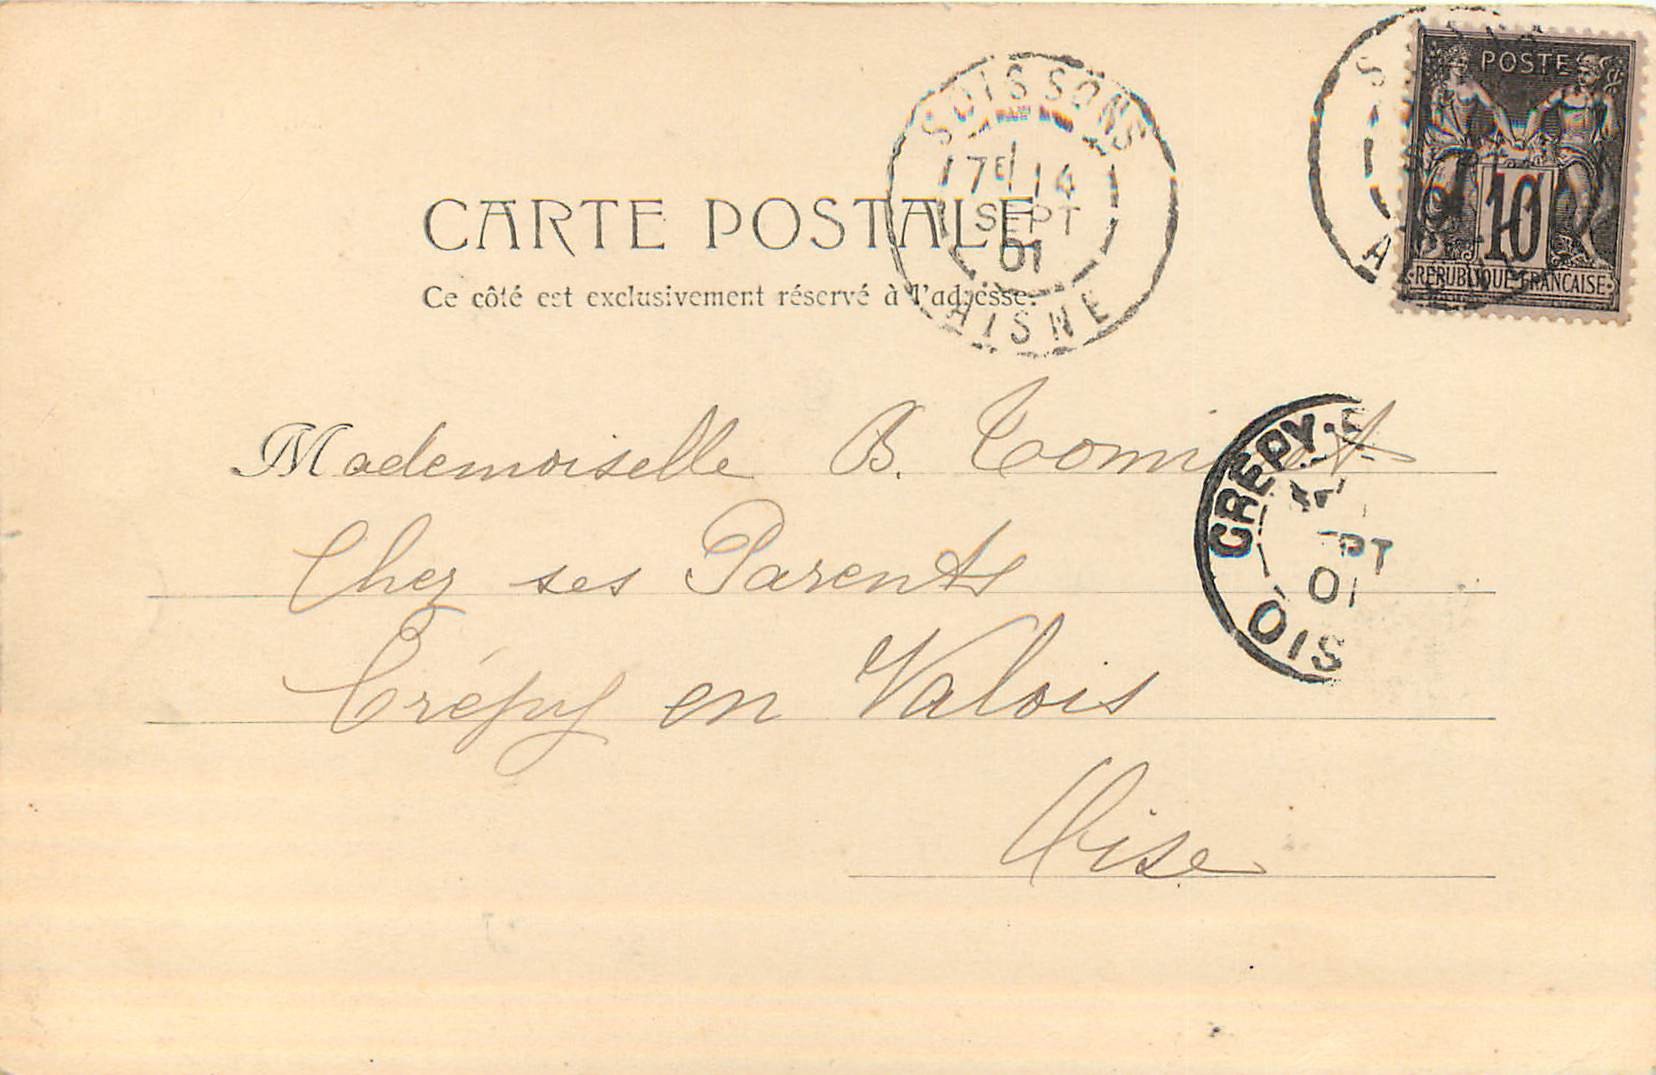 SOISSONS
7E 14
SEPT
01
AISNE
POSTES
10
RÉPUBLIQUE FRANÇAISE
CARTE POSTALE
Ce côté est exclusivement réservé à l'adresse.
Mademoiselle B.
Chez ses Parents
Crépy en Valois
Oise
CREPY
EPT
01
OIS